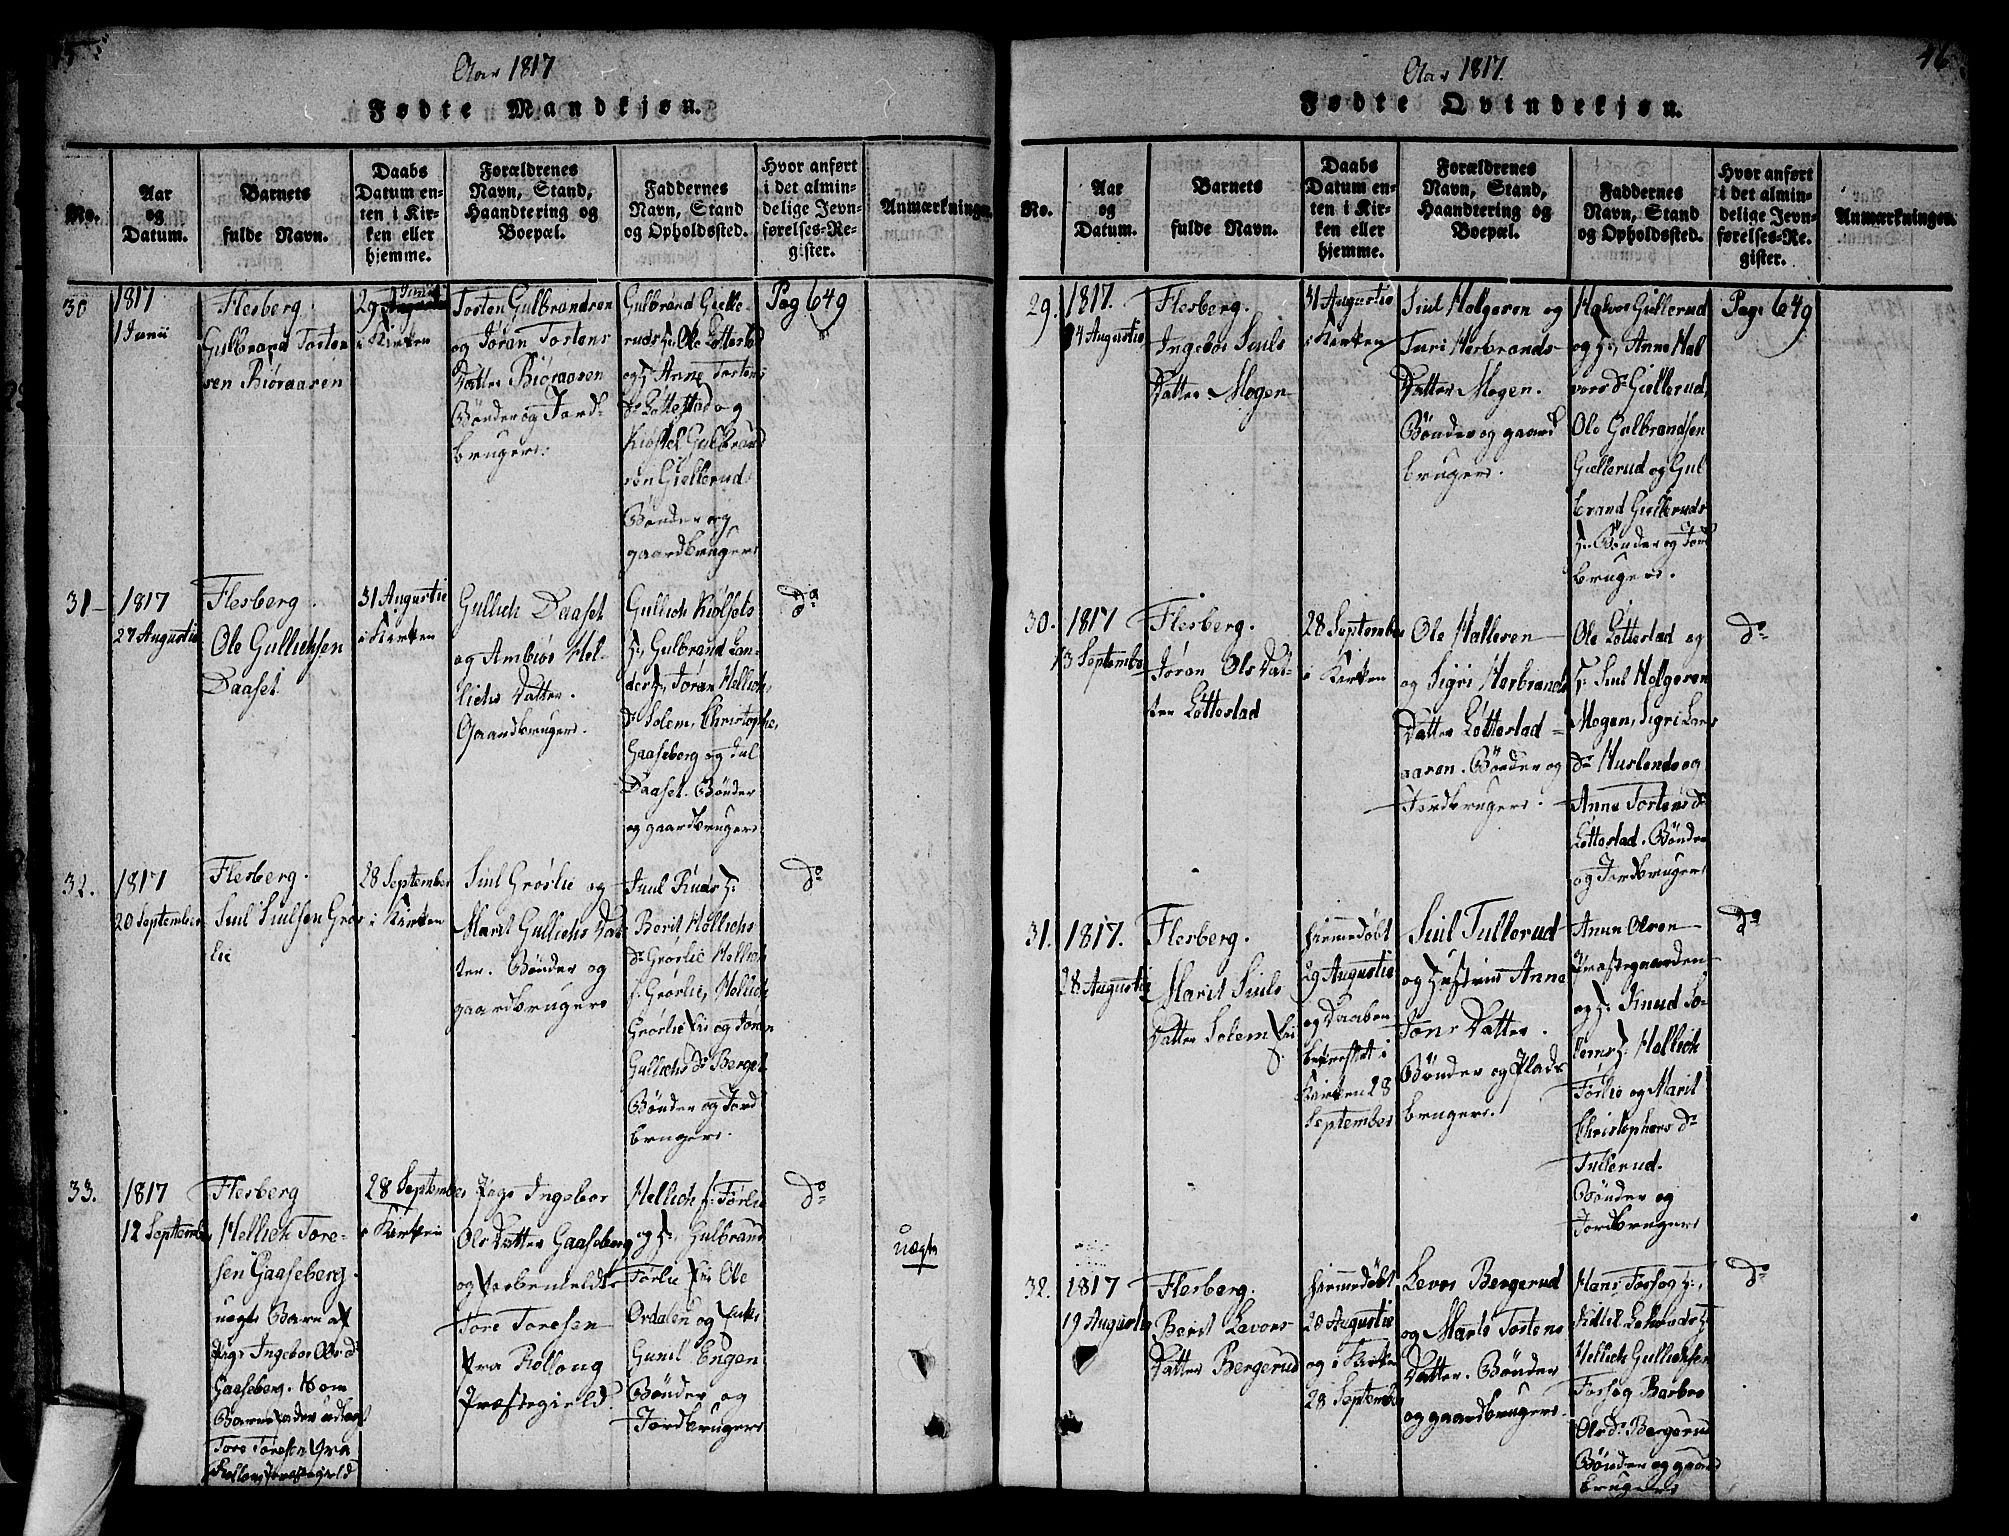 Aar 1817
Fødte Mandkjøn.
No.
Aar
og
Datum.
Barnets
fulde Navn.
Daabs
Datum en-
ten i Kir-
ken eller
hjemme.
Forældrenes
Navn, Stand,
Haandtering og
Boepæl.
Faddernes
Navn, Stand
og Opholdssted.
Hvor anført
i det almin-
delige Jevn-
førelses-Re-
gister.
Anmærkninger.
30
1817
1 Junii
Flesberg.
Gulbrand Tosten
sen Bióraasen
29 Junii
i Kirken
Tosten Gulbrandsen
og Jöran Tostens
Datter Bióraasen
Bönder og Jord-
brugere.
Gulbrand Gielle-
ruds H: Ole Lottestad
og H. Anne Tostens
Dr Lottestad og
Kióstel Gulbrand
sen Giellerud
Bönder og
gaardbrugere
Pag 649
31
1817
27 Augustii
Flesberg.
Ole Gullichsen
Daaset
31 Augustii
i Kirken
Gullich Daaset
og Ambiór Hel-
lichs Datter.
Gaardbrugere.
Gullich Kiólsets
H, Gulbrand Lan-
ders, Jöran Hellichs
Dr Solem, Christopher
Gaaseberg og Jul
Daaset. Bönder
og gaardbrugere
do
32.
1817
20 September
Flesberg.
Siul Siulsen Grös
lie
28 September
i Kirken
Siul Gróslie og
Marit Gullichs Dat
ter. Bönder og
gaardbrugere
Juul Ruuds H:
Berit Hellichs
Dr Gróslie Hellich
s. Gróslie, Hellich
Gróslie Eie og Jöran
Gullichs Dr Berget
Bönder og Jord
brugere.
do
33.
1817
12 September
Flesberg
Hellich Tore-
sen Gaaseberg.
uægte Barn af
Pige Ingebor Ols D
Gaaseberg. Som
Barnefader udlagt
Tore Toresen fra
Rollougs præstegield
28 September
i Kirken
Pige Ingebor
Ols Datter Gaaseberg
og forbemeldte
Tore Toresen
fra Rolloug
Præstegield
Hellich s. Törlie
og H. Gulbrand
Törlie Eie Ole
Ordalen og Enke
Gunil Engen
Bönder og
Jordbrugere
do
uægte
46
Aar 1817.
Fødte Qvindekjøn.
No.
Aar
og
Datum.
Barnets
fulde Navn.
Daabs
Datum en-
ten i Kir-
ken eller
hjemme.
Forældrenes
Navn, Stand,
Haandtering og
Boepæl.
Faddernes
Navn, Stand
og Opholdssted.
Hvor anført
i det almin-
delige Jevn-
førelses-Re-
gister.
Anmærkninger.
29.
1817.
24 Augustii
Flesberg.
Ingebor Siuls
Datter Mogen
31 Augustii
i Kirken
Siul Holgersen og
Turi Herbrands
Datter Mogen.
Bönder og gaard
brugere.
Halvor Giellerud
og H, Anne Hal
vors Dr Giellerud,
Ole Gulbrandsen
Giellerud og Gul
brand Gielleruds
H. Bönder og Jord
brugere.
Pag: 649
30.
1817
13 September
Flesberg.
Jöran Ols Dat-
ter Lottestad
28 September
i Kirken
Ole Halversen
og Sigri Herbrands
Datter Lottestad-
aasen. Bönder og
Jordbrugere.
Ole Lottestad og
H: Siul Holgersen
Mogen, Sigri Lars
Dr Huslende og
Anne Tostens Dr
Lottestad. Bönder
og Jordbrugere
do
31.
1817.
28 Augustii
Flesberg.
Marit Siuls
Datter Solem Eie
hiemmedöbt
29 Augustii
og Daaben
bekræftet i
Kirken 28
September
Siul Tullerud
og Hustrue Anne
Jons Datter.
Bönder og Plads
brugere.
Anun Olsen
Præstegaarden
og H. Knud So-
lems H. Hellich
Törlie og Marit
Christophers Dr
Tullerud.
Bönder og
Jordbrugere
do
32.
1817
19 Augustii
Flesberg.
Berit Levors
Datter Bergerud
hiemmedöbt
28 Augustii
og i Kirken
28 September
Levor Bergerud
og Marte Tostens
Datter. Bönder
og gaardbrugere.
Hans Fosseg H.,
Hellich Gullichsen
Fosseg Barbro
Ols Dr Bergerud
Bönder og gaard
brugere
do